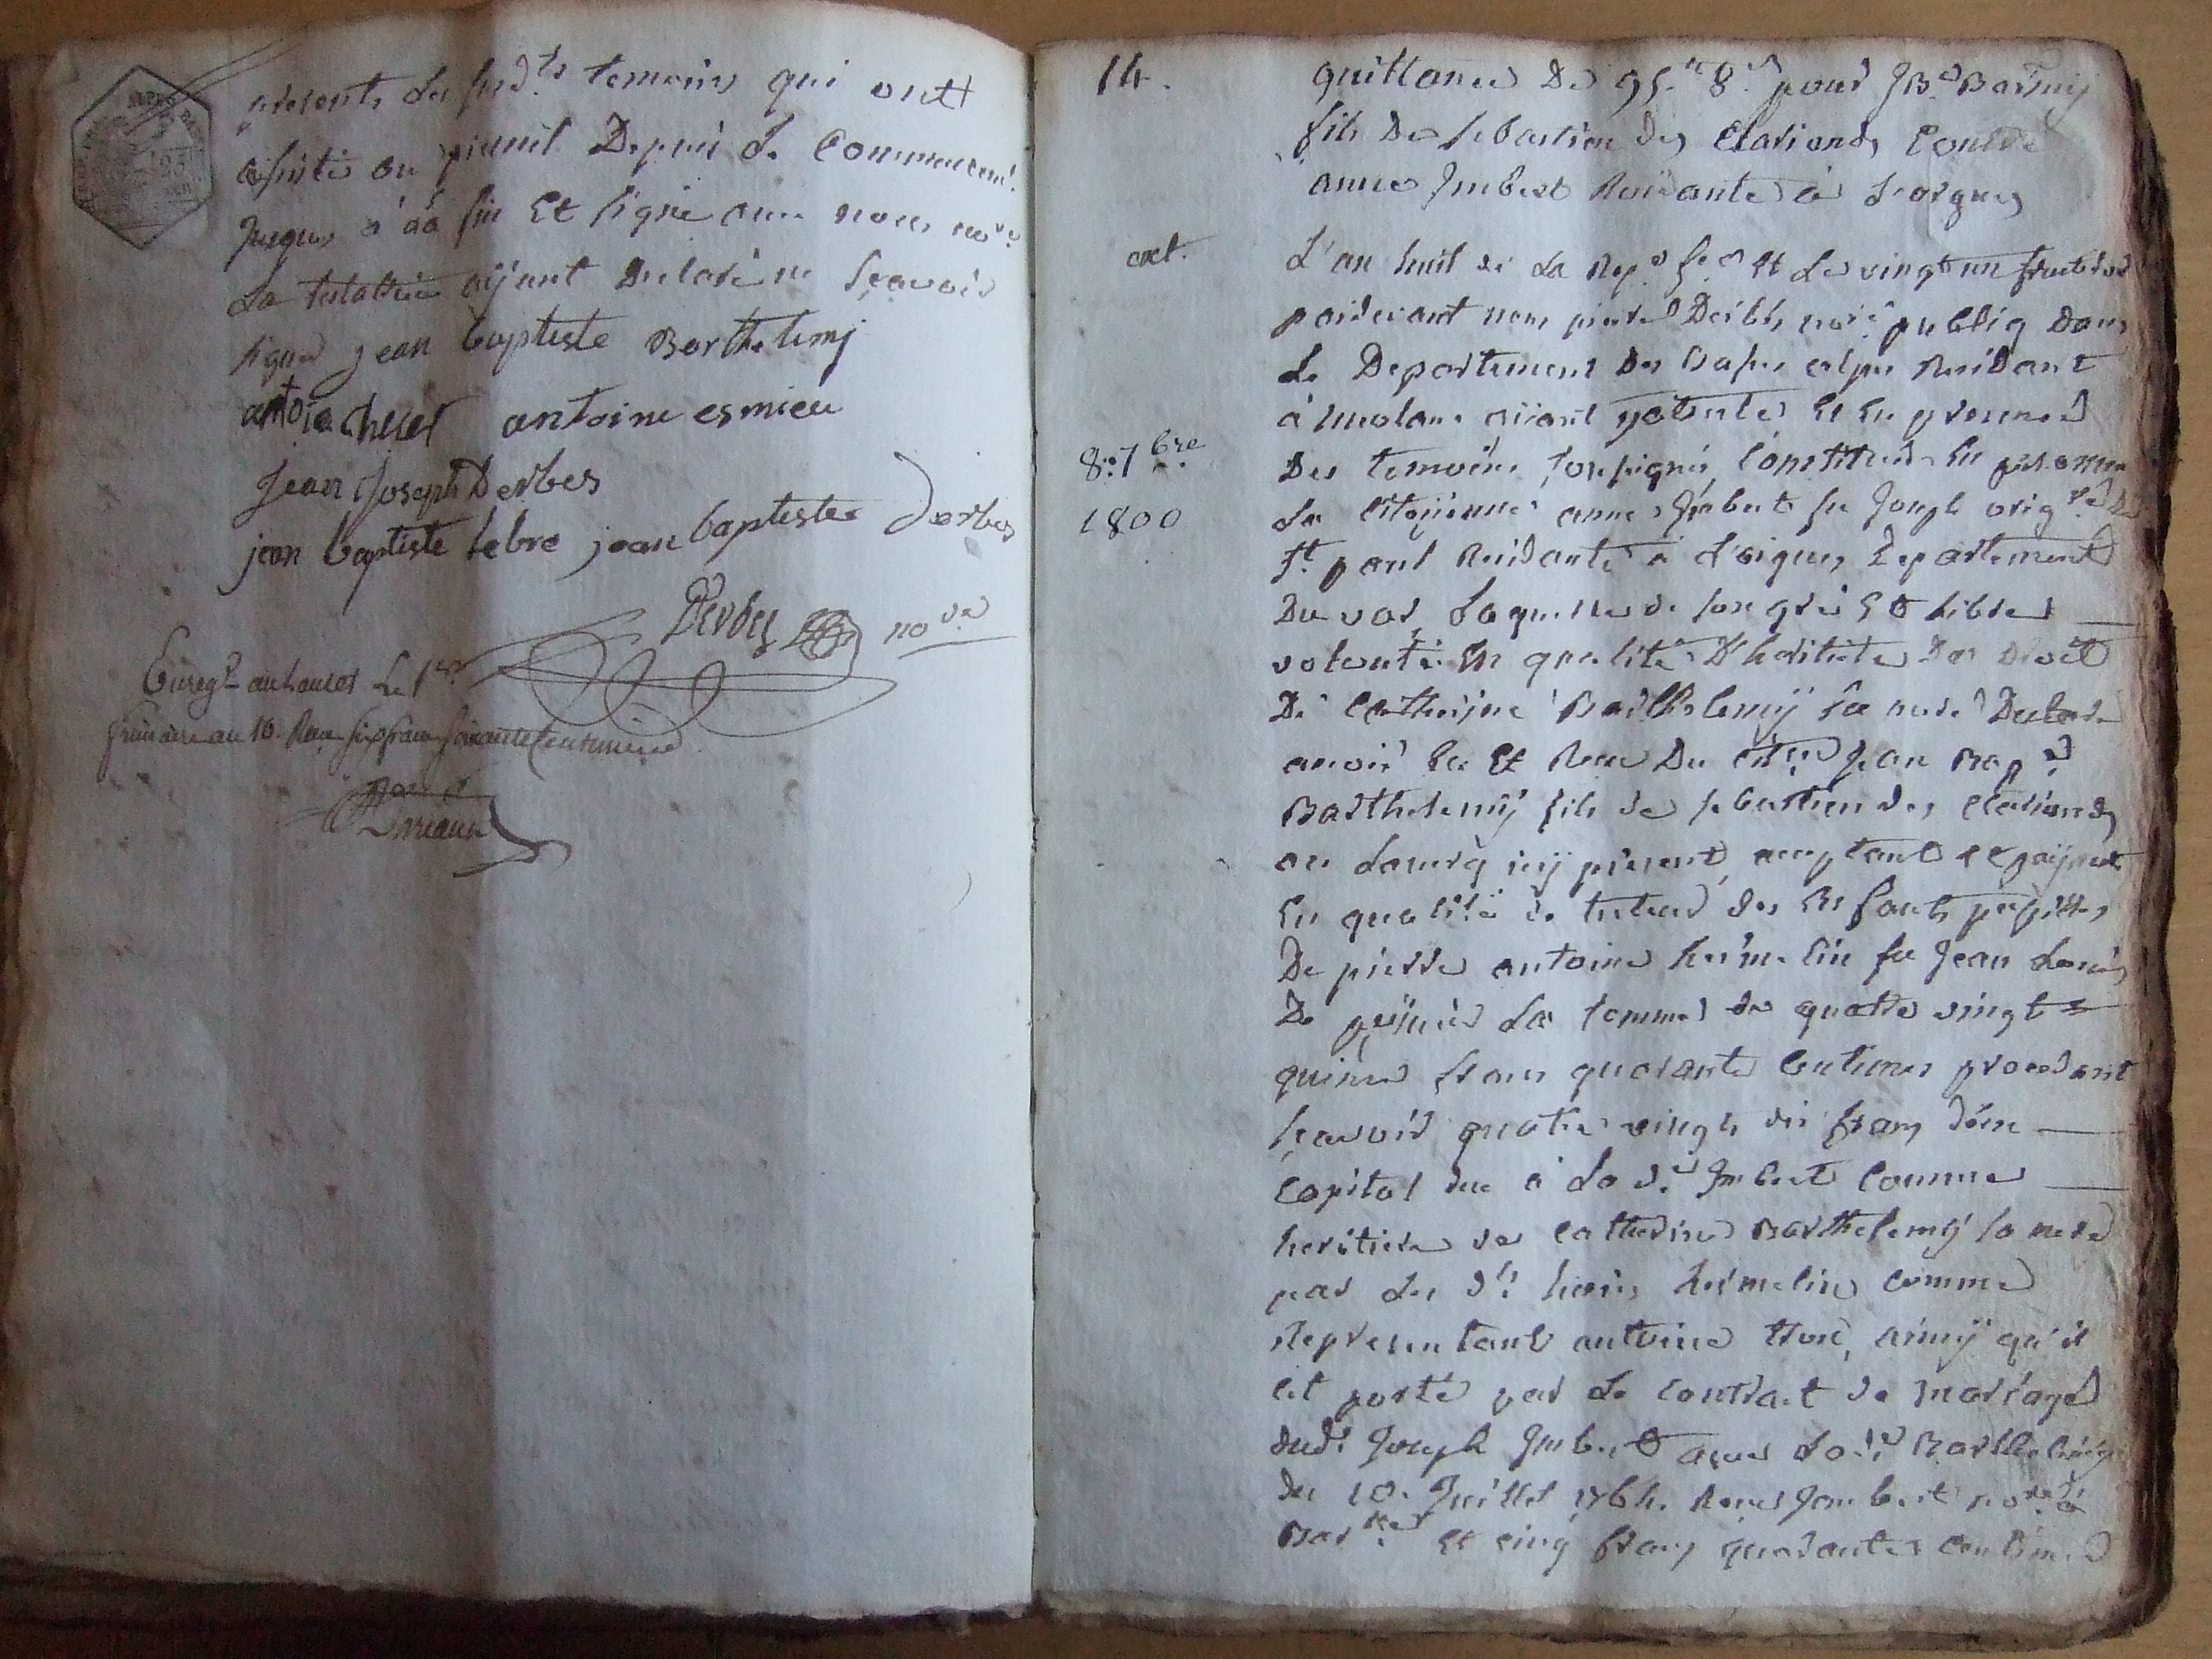 presents les susd.ts temoins qui ont
assisté au present Depuis le Commencem.t
jusques à la fin Et signé avec nous no.re
La testatrice aÿant declaré ne sçavoir
signer jean baptiste Barthelemj
antoine esmieu
Jean Joseph Derbes
jean baptiste lebre jean baptiste Derbes
Derbes no.re
Enreg.t au Lauzet Le 1er
frimaire an 10. Recu six francs soixante Centimes
14.
quittance De 95.# 8.s pour JB.te Bar.mij
fils De sebastien des Clarionds Contre
anne Imbert Residante à Lorgues
ext.
L'an huit de La Rep.e f.se et Le vingt un fructidor
pardevant nous pierre Derbes no.re public dans
Le Departement Des basses alpes Residant
à meolans aÿant patente et En presence
8. 7bre
Des temoins soussignés, Constituée En personne
1800
La Citoÿenne anne Imbert feu Joseph orig.re de
St. paul Residante à Lorgues Departement
Du var, Laquelle de son gré Et libre
volonté En qualité D'heritiere Des Droits
De Catherine Barthelemÿ sa mere Declare
avoir Eu Et Recu Du cito.en Jean Bap.te
Barthelemÿ fils de sebastien des clarionds
au Lauzet icÿ present, acceptant et paÿant
En qualité de tuteur des Enfants pupilles
De pierre antoine hermelin feu Jean Louis
De La somme de quatre vingt
quinze francs quarante Centimes procedant
sçavoir quatre vingts dix francs d'un
Capital due à La d.e Imbert Comme
heritiere de Catherine Barthelemÿ sa mere
par Les d.ts hoirs hermelin comme
Representant antoine tron, ainsÿ qu'il
est porté par Le Contract de mariage
dud.t Joseph Imbert avec La d.e Barthelemÿ
du 10. Juillet 1764. Reçu Jaubert no.re à
Bar.tte Et cinq francs quarante centimes